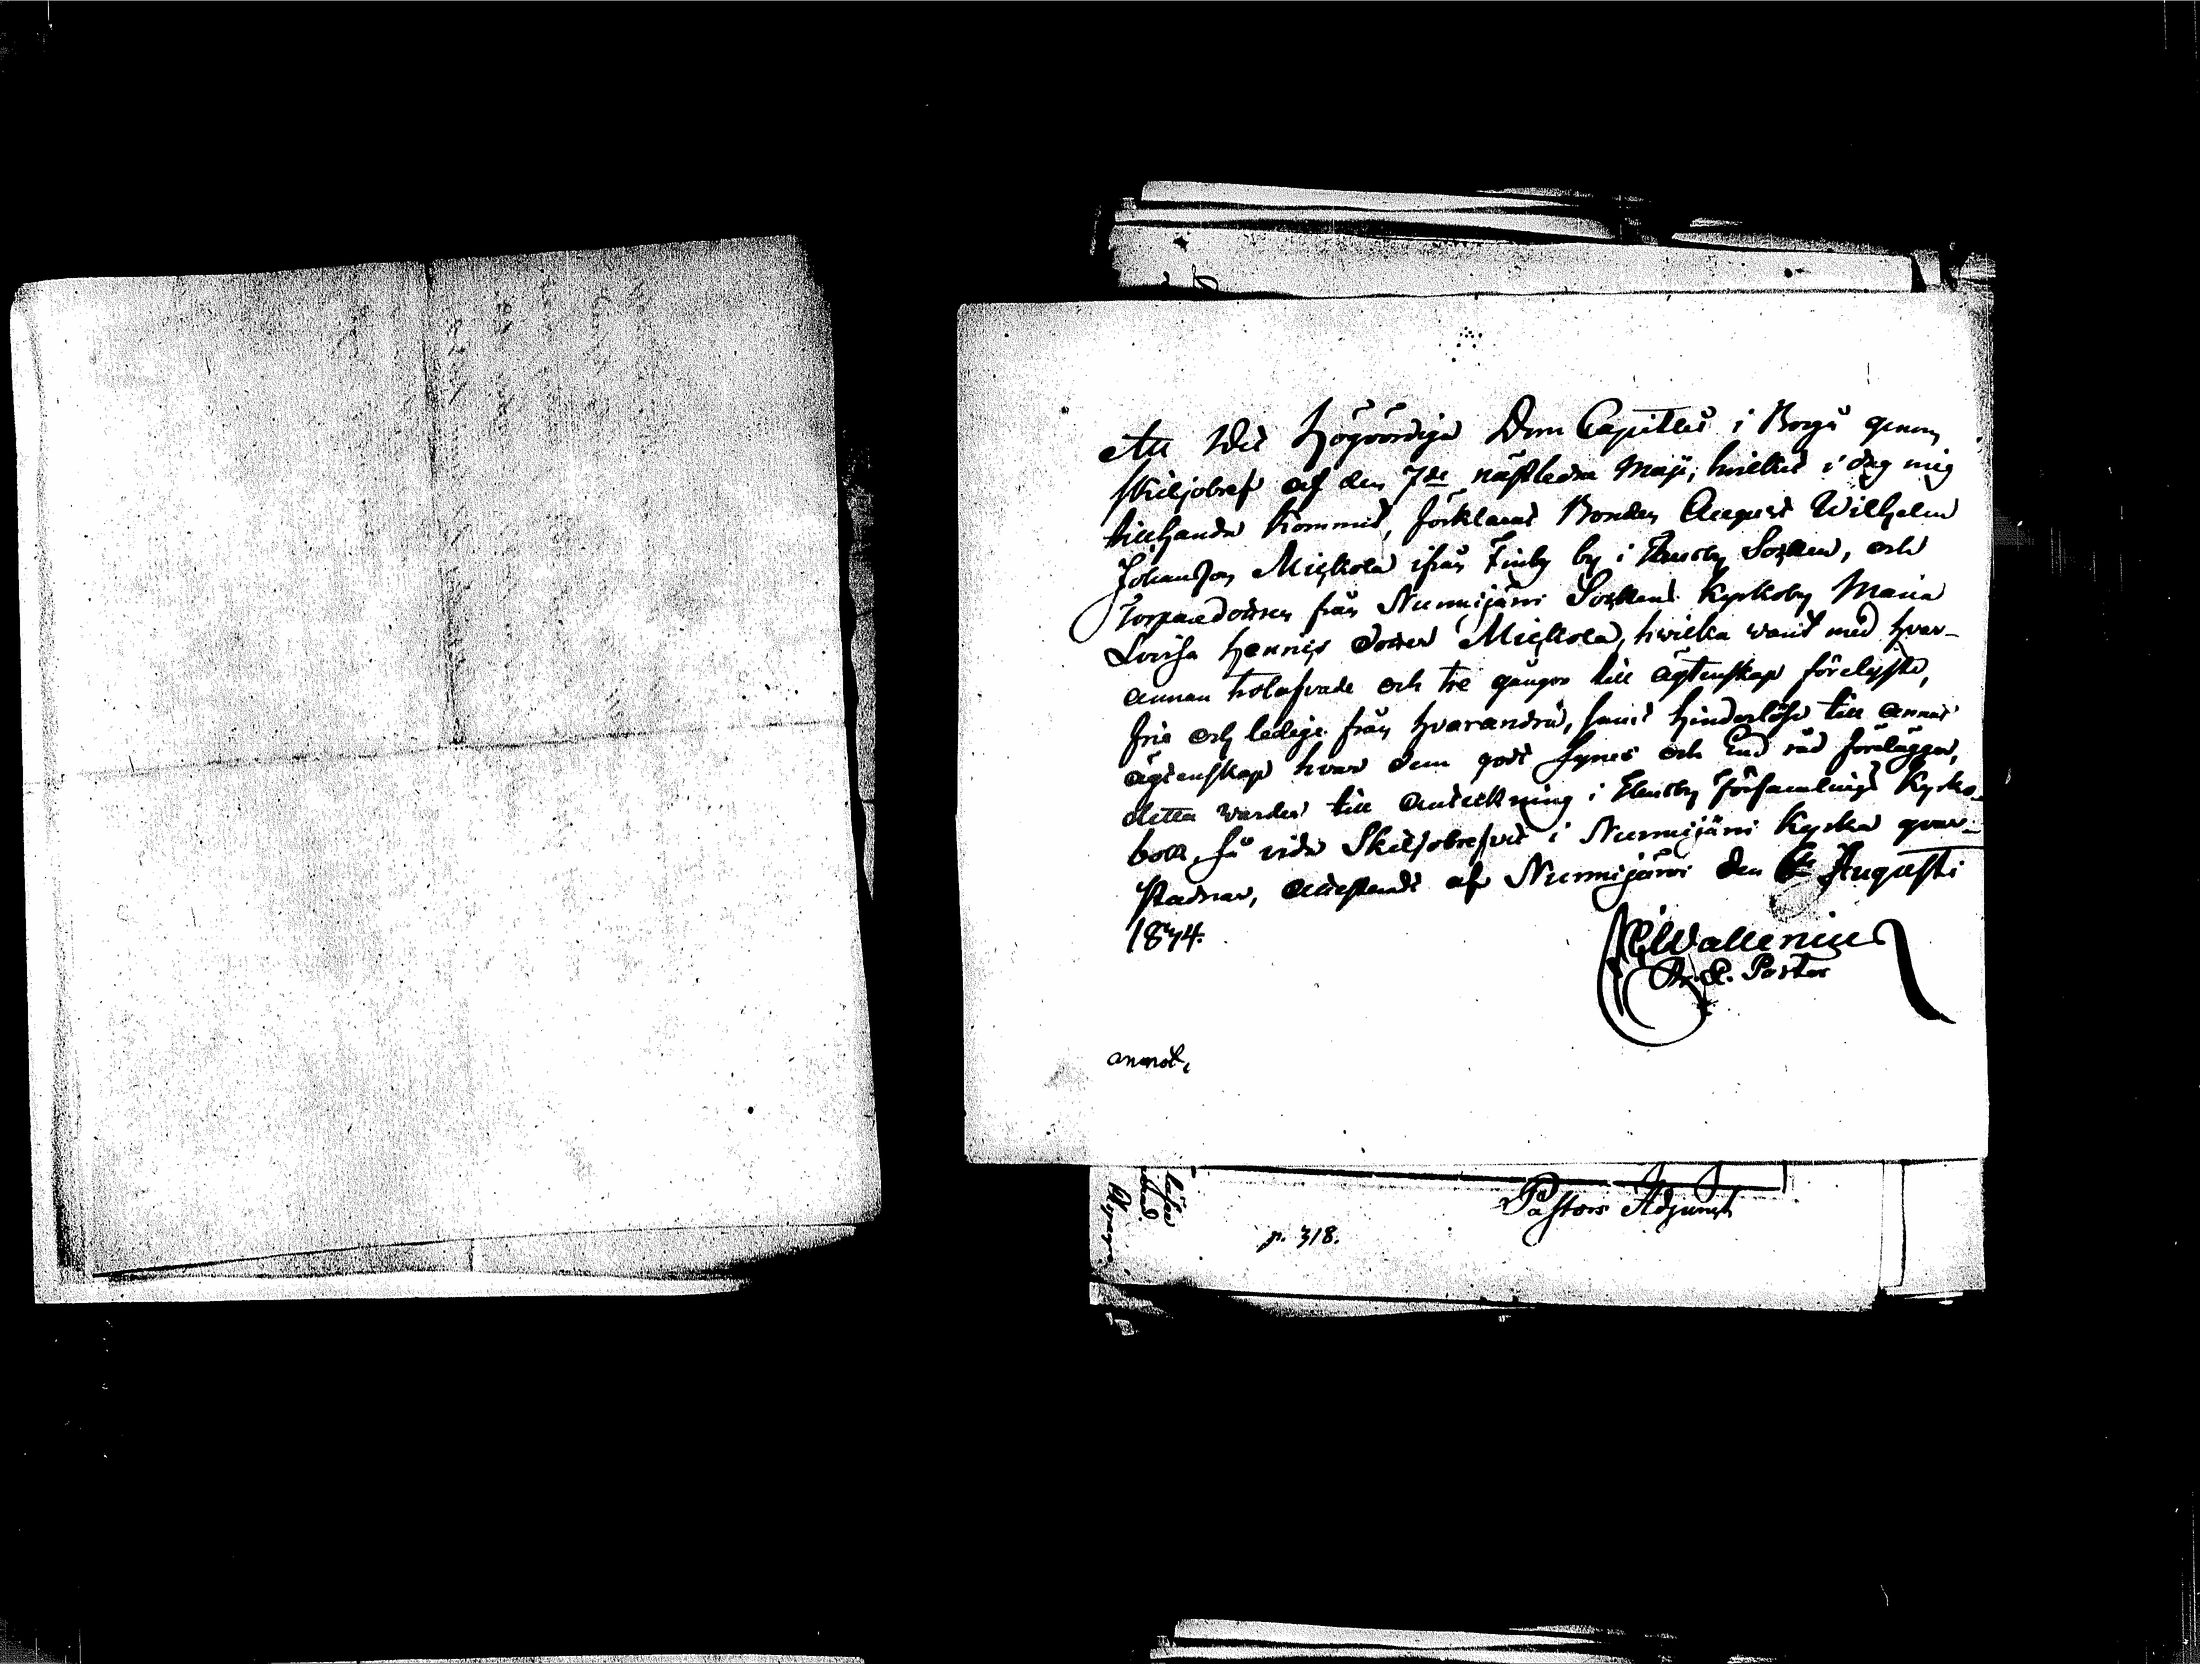 Att Det Högvördiga Dom Capitlet i Borgå genom
skiljobref af den 7de nästledne Maji, hvilket i dag mig
tillhanda kommit, förklarat Bonden August Wilhelm
Johansson Mickola ifrån Finby by i Thusby Socken, och
Torparedottren från Nurmijärvi Sockens Kyrkoby Maria
Lovisa Hennis dotter Mickola, hvilka varit med hvar-
annan trolofvade och tre gånger till ägtenskap förelyste,
frie och ledige från hvarandra, samt hinderlöse till annat
ägtenskap hvar dem godt synes och Gud råd förelägger,
detta warder till anteckning i Thusby Församlings Kyrko-
bok, så vida Skiljobrefvet i Nurmijärvi Kyrka qvar-
stadnar, attesteradt af Nurmijärvi den 6te Augusti
1834.
Wallenius
Pastor
annot.
Pastors Adjunct
p. 318.